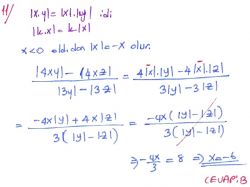 11/ |x.y| = |x|.|y| idi
|k.x| = k.|x|
x<0 old.dan |x| = -x olur.
(|4xy| - |4xz|) / (|3y| - |3z|) = (4|x|.|y| - 4|x|.|z|) / (3|y| - 3|z|)
= (-4x|y| + 4x|z|) / (3(|y| - |z|)) = (-4x(|y| - |z|)) / (3(|y| - |z|))
⇒ -4x/3 = 8 ⇒ x = -6
CEVAP: B